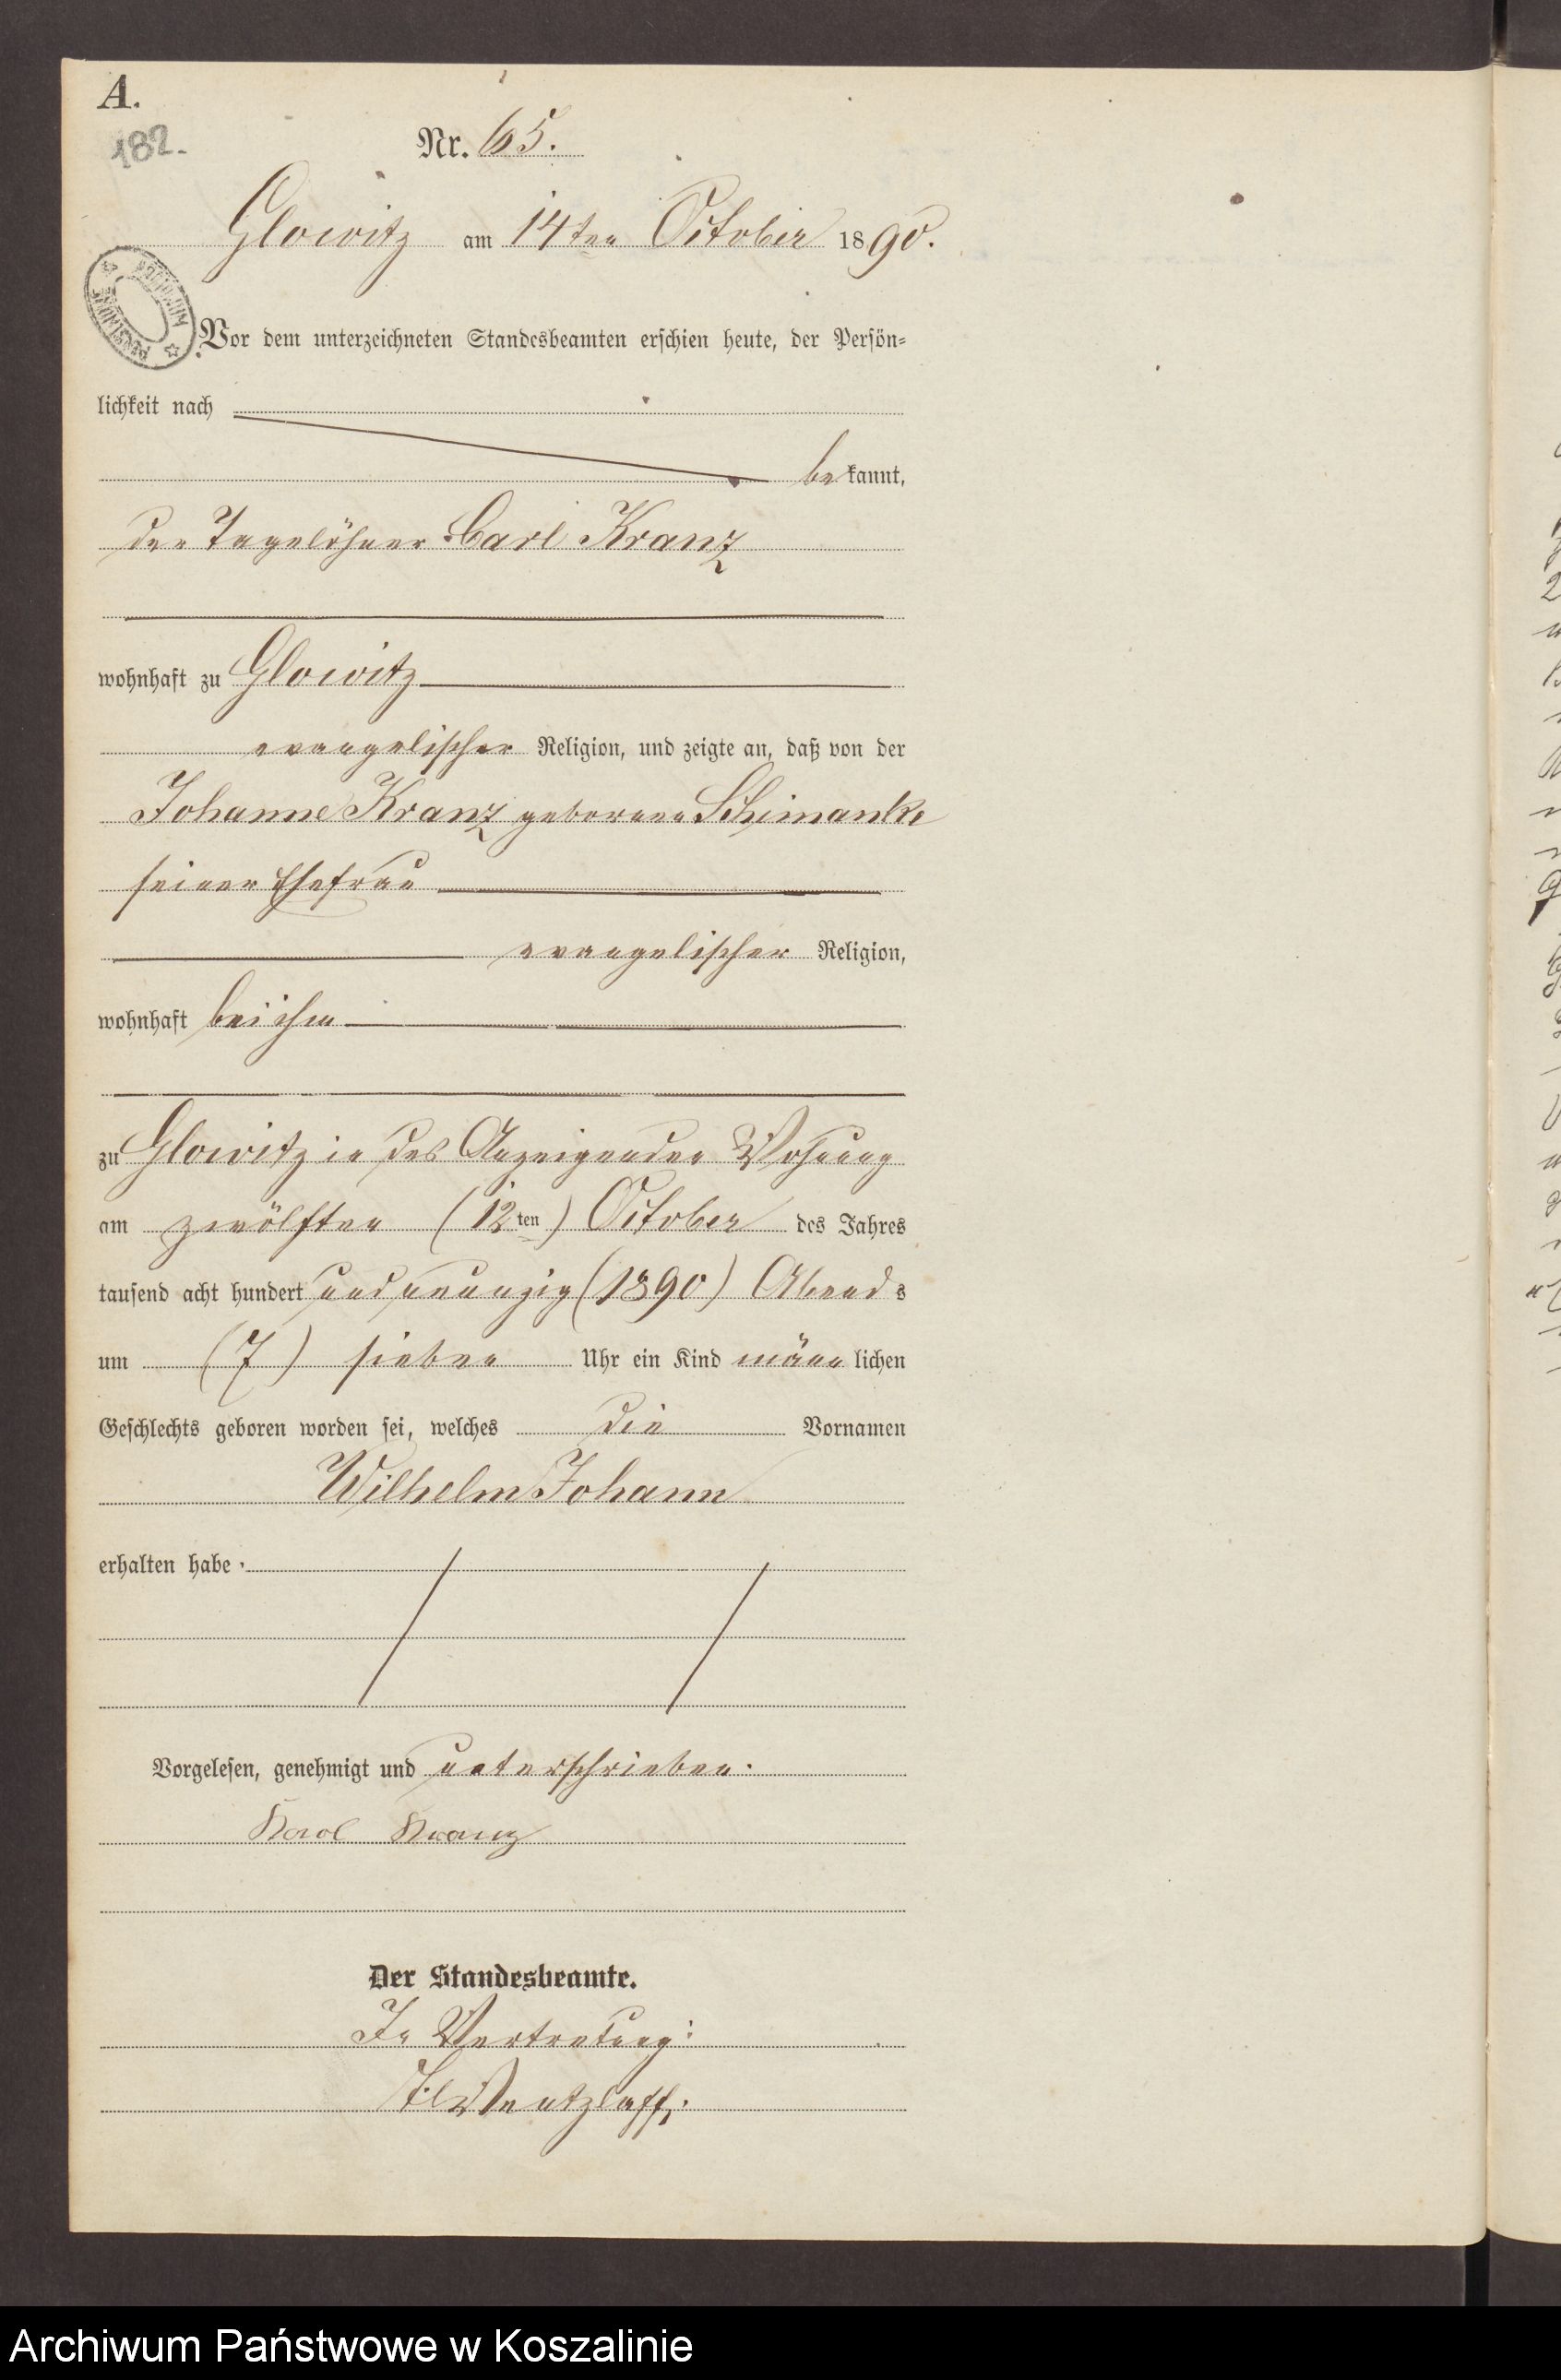 A.
182.
Nr. 65.
Glowitz am 14ten October 1890.
Vor dem unterzeichneten Standesbeamten erschien heute, der Persön=
lichkeit nach
bekannt,
der Tagelöhner Carl Kranz
wohnhaft zu Glowitz
evangelischer Religion, und zeigte an, daß von der
Johanne Kranz geborene Schimanke
seiner Ehefrau
evangelischer Religion,
wohnhaft bei ihm
zu Glowitz in des Anzeigenden Wohnung
am zwölften (12ten) October des Jahres
tausend acht hundert und neunzig (1890) Abends
um (7) sieben Uhr ein Kind männlichen
Geschlechts geboren worden sei, welches die Vornamen
Wilhelm Johann
erhalten habe.
Vorgelesen, genehmigt und unterschrieben.
Karol Kranz
Der Standesbeamte.
In Vertretung:
Wentzlaff.
Archiwum Państwowe w Koszalinie